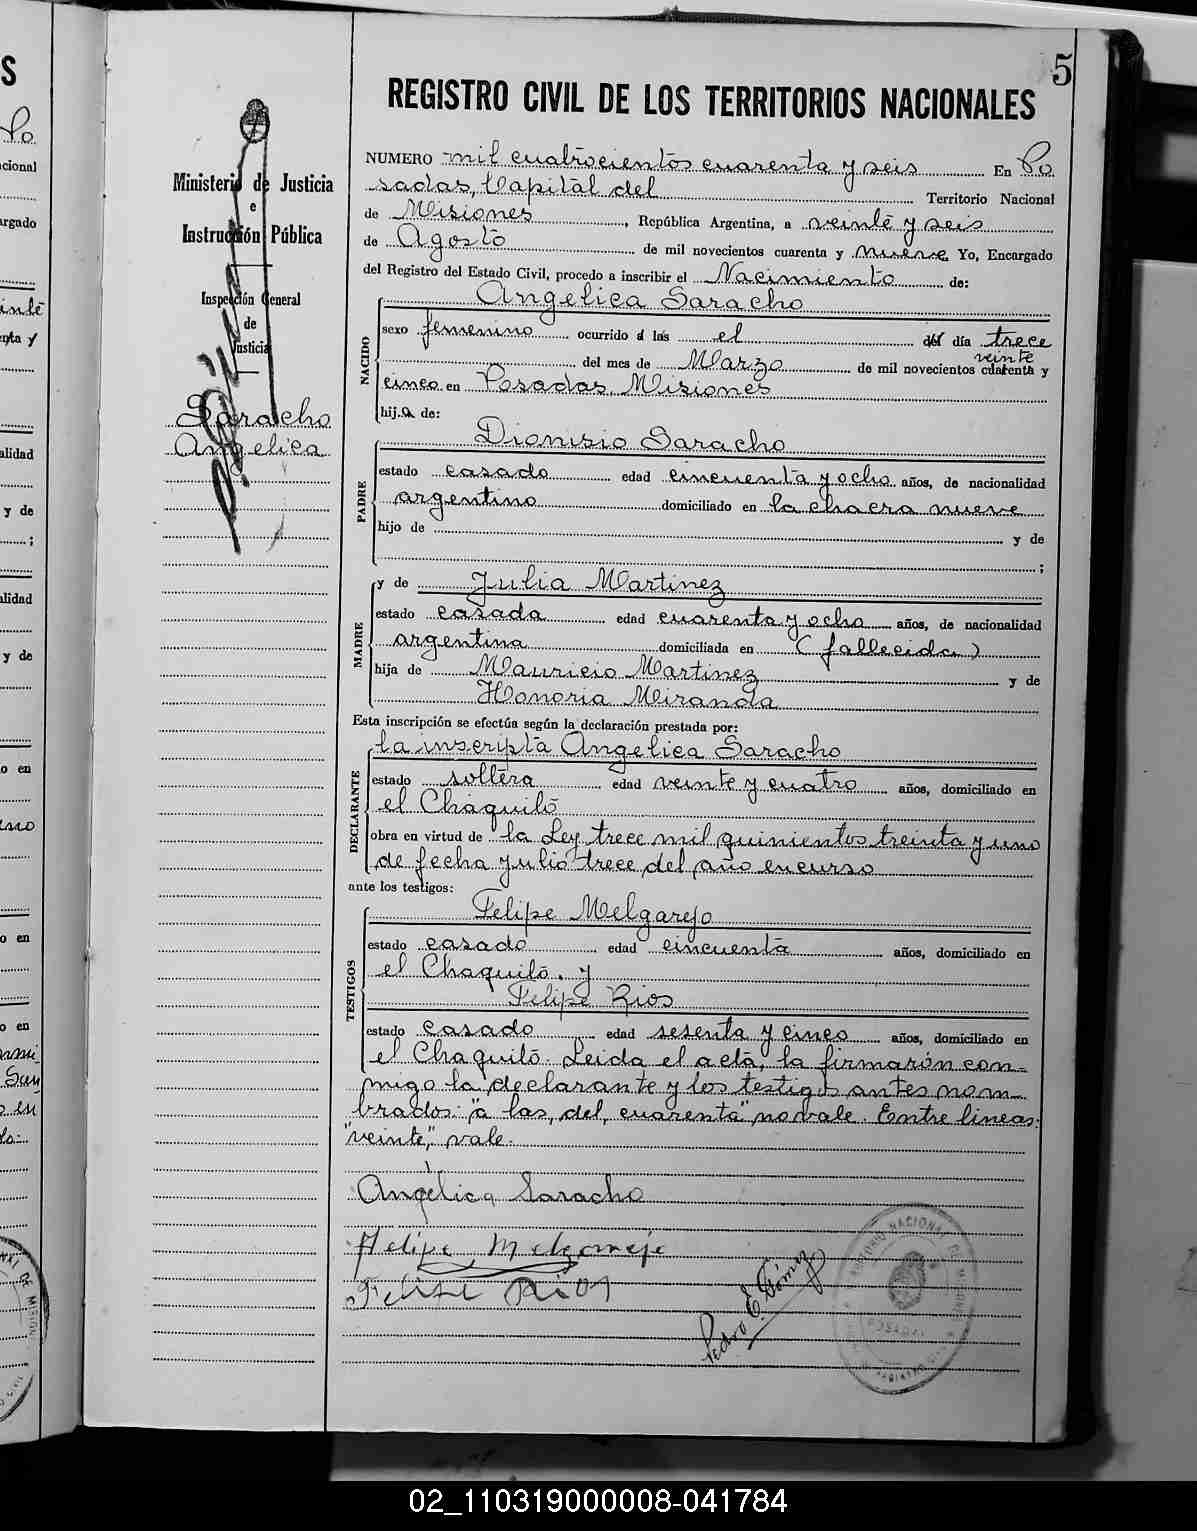 5
REGISTRO CIVIL DE LOS TERRITORIOS NACIONALES
Ministerio de Justicia
e
Instrucción Pública
Inspección General
de
Justicia
Saracho
Angelica
NUMERO mil cuatrocientos cuarenta y seis En Po
sadas, Capital del Territorio Nacional
de Misiones, República Argentina, a veinte y seis
de Agosto de mil novecientos cuarenta y nueve Yo, Encargado
del Registro del Estado Civil, procedo a inscribir el Nacimiento de:
NACIDO
Angelica Saracho
sexo femenino ocurrido a las el del día trece
veinte
del mes de Marzo de mil novecientos cuarenta y
cinco en Posadas, Misiones
hij.a de:
PADRE
Dionisio Saracho
estado casado edad cincuenta y ocho años, de nacionalidad
argentino domiciliado en la chacra nueve
hijo de y de
;
MADRE
y de Julia Martinez
estado casada edad cuarenta y ocho años, de nacionalidad
argentina domiciliada en (fallecida)
hija de Mauricio Martinez y de
Honoria Miranda
Esta inscripción se efectúa según la declaración prestada por:
DECLARANTE
la inscripta Angelica Saracho
estado soltera edad veinte y cuatro años, domiciliado en
el Chaquito
obra en virtud de la Ley trece mil quinientos treinta y uno
de fecha julio trece del año en curso
ante los testigos:
TESTIGOS
Felipe Melgarejo
estado casado edad cincuenta años, domiciliado en
el Chaquito. y
Felipe Rios
estado casado edad sesenta y cinco años, domiciliado en
el Chaquito. Leida el acta, la firmarón con-
migo la declarante y los testigos antes nom-
brados: "a las, del, cuarenta" no vale. Entre lineas:
"veinte", vale.
Angélica Saracho
Felipe Melgarejo
Felipe Rios
Pedro E. Gómez
POSADAS
02_110319000008-041784